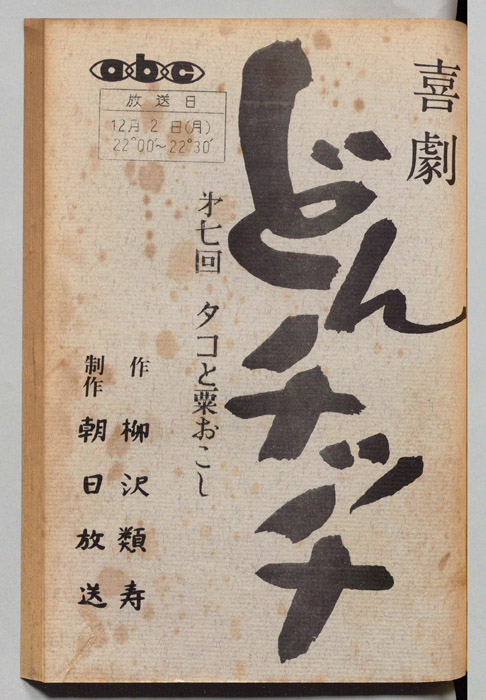 喜劇
どんチッチ
才七回 タコと粟おこし
作 柳沢類寿
制作 朝日放送
abc
放送日
12月2日(月)
22°00′~22°30′